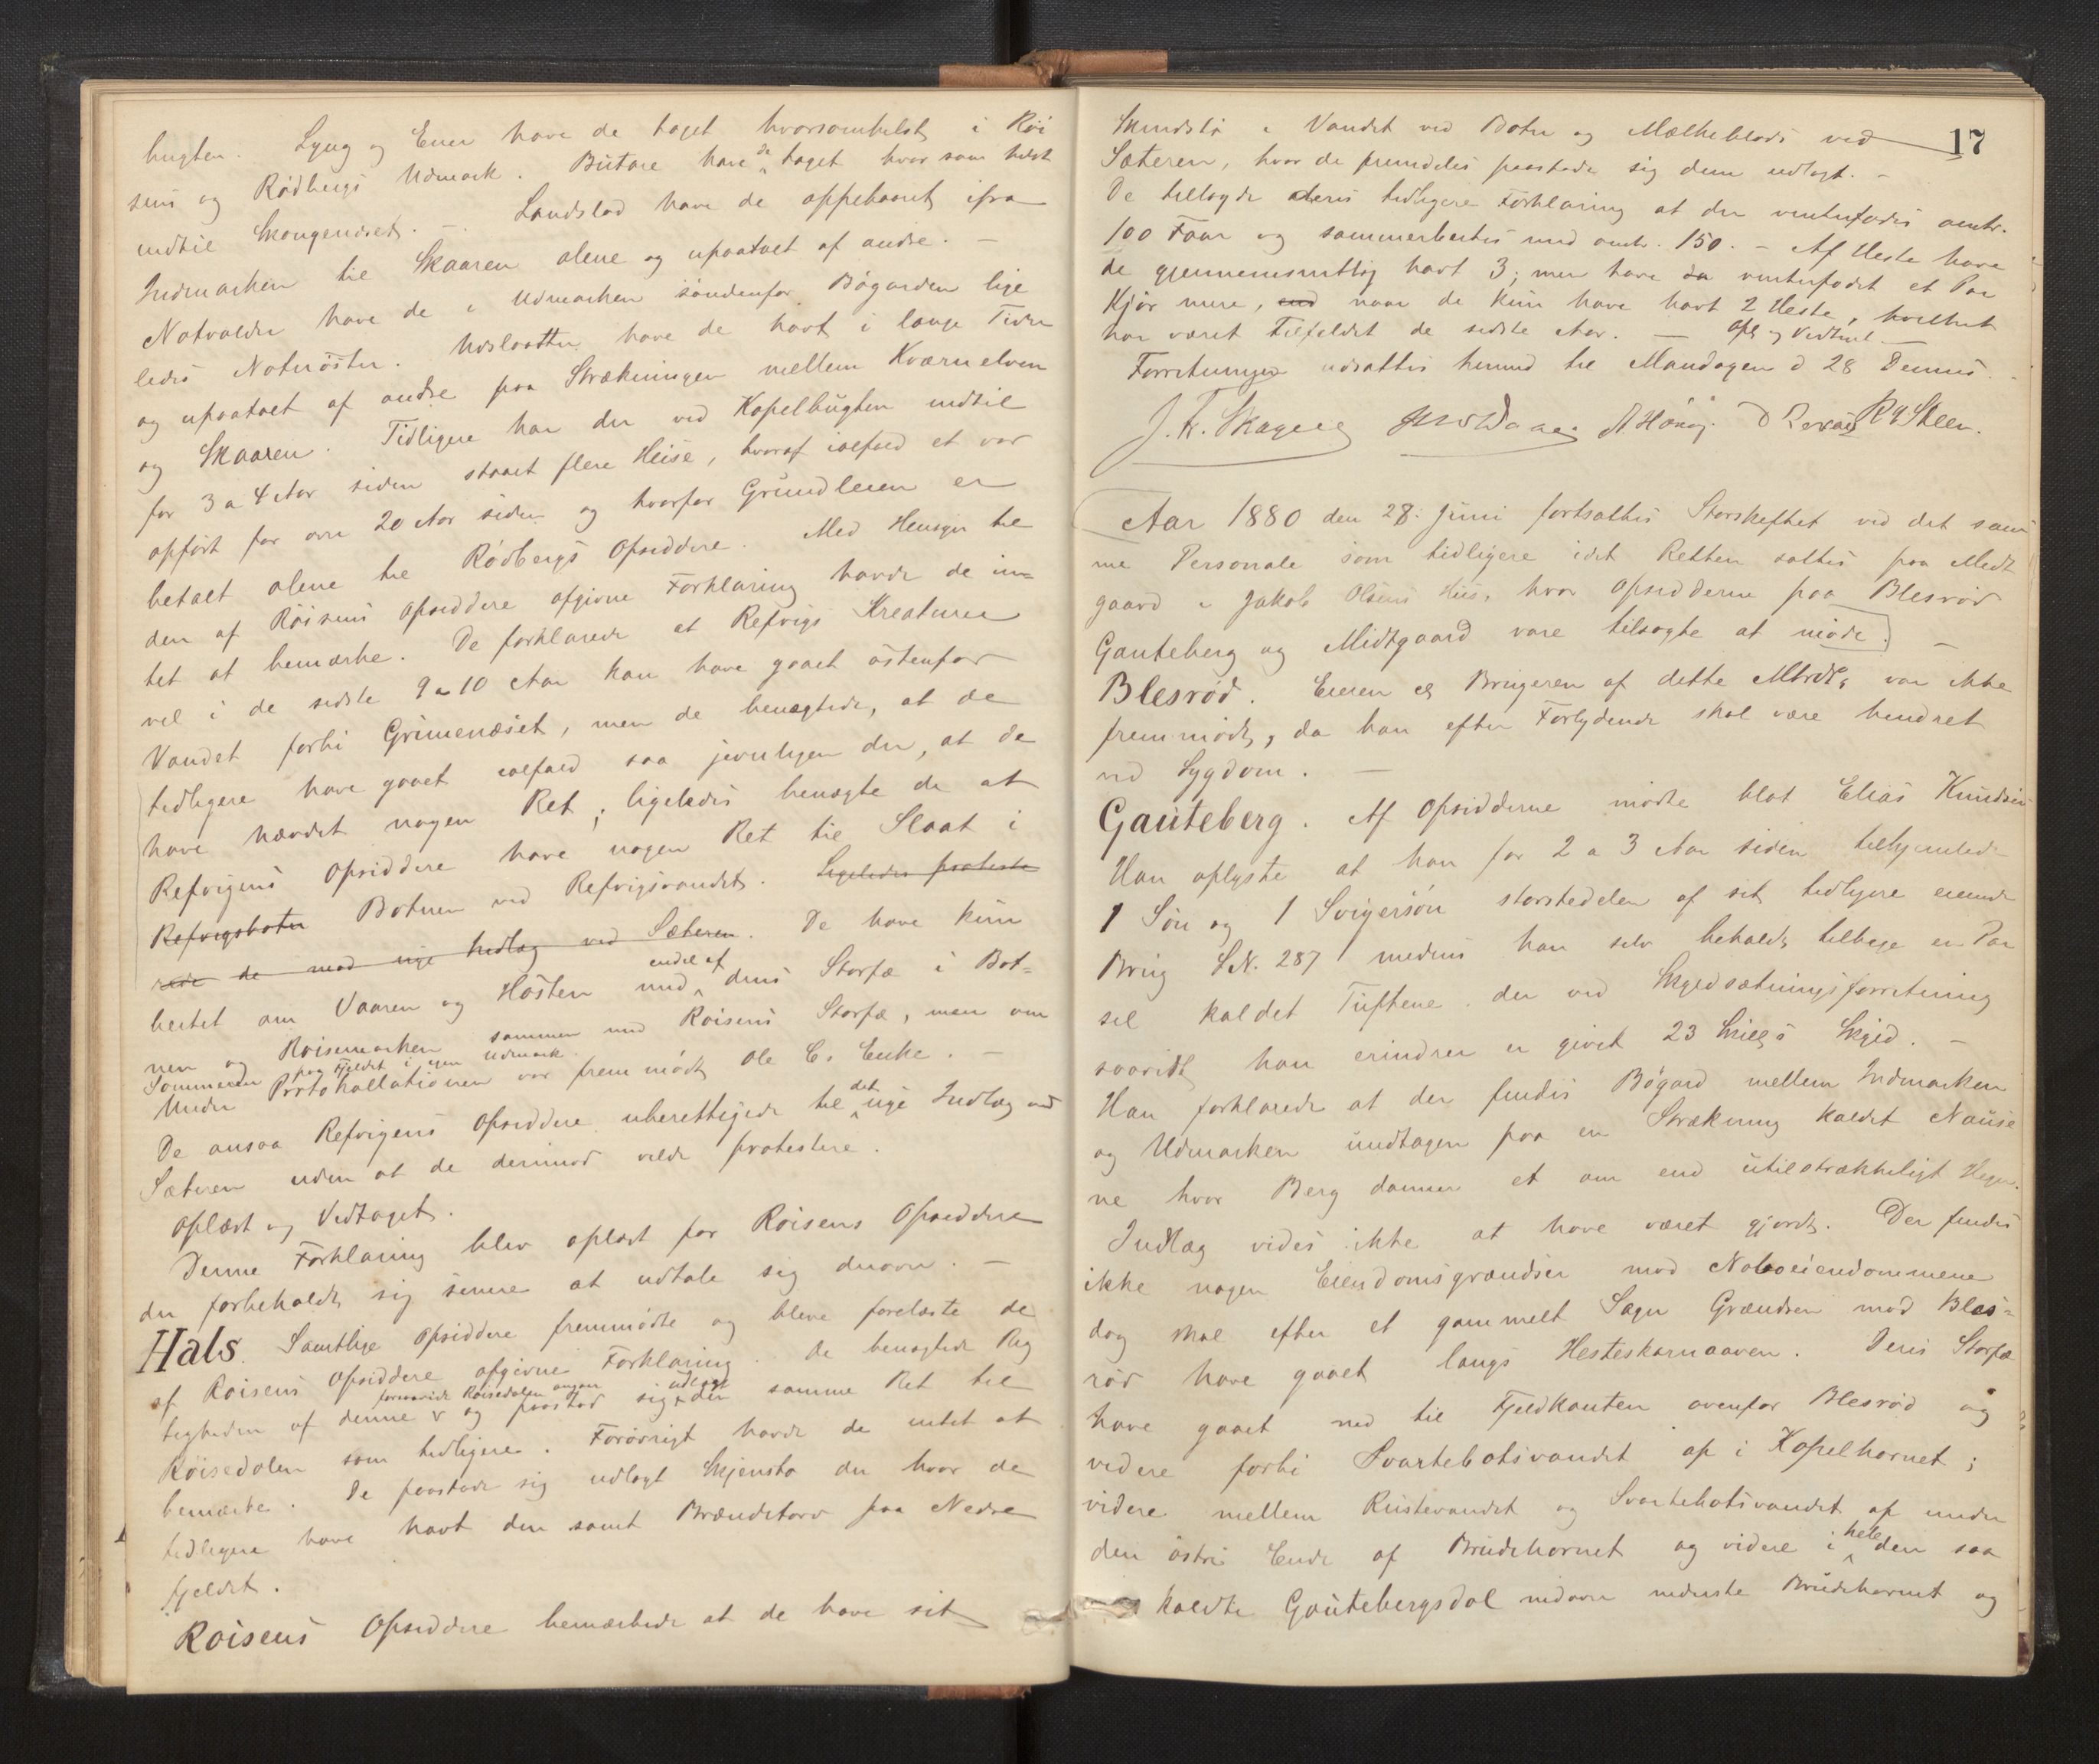 bugten. Lyng og Ener have de taget hvorsomhelst i Röi
sens og Rödbergs Udmark. Butare have de taget hvor som helst
indtil Skongenæset. — Landslod have de oppebaaret ifra
Indmarken til Skaaren alene og upaatalt af andre. —
Notvolder have de i Udmarken söndenfor Bögarden lige
ledes Notnöster. Udslaatter have de havt i lange Tider
og upaatalt af andre paa Strækningen mellem Kværnelven
og Skaaren. Tidligere har der ved Kapelbugten indtil
for 3 a 4 Aar siden staaet flere Huse, hvoraf ialfald et var
opfört for over 20 Aar siden og hvorfor Grundleien er
betalt alene til Rödbergs Opsiddere. Med Hensyn til
den af Röisens Opsiddere afgivne Forklaring havde de in=
tet at bemærke. De forklarede at Refvigs Kreaturer
vel i de sidste 9 a 10 Aar kan have gaaet östenfor
Vandet forbi Grimenæset, men de benægtede, at de
tidligere have gaaet ialfald saa jevnligen der, at de
have hævdet nogen Ret; ligeledes benægte de at
Refvigens Opsiddere have nogen Ret til Slaat i
Refvigsboten Botnen ved Refvigsvandet. Ligeledes proteste
rede de mod nye Indlæg ved Sæteren. De have kun
beitet om Vaaren og Hösten med endel af deres Storfæ i Bot=
nen og Röisemarken sammen med Röisens Storfæ, men om
Sommeren paa Fjeldet i egen Udmark.
Under Protokollationen var fremmödt Ole Cs Enke. —
De ansaa Refvigens Opsiddere uberettigede til det nye Indlæg ved
Sæteren uden at de derimod vilde protestere.
Oplæst og Vedtaget.
Denne Forklaring blev oplæst for Röisens Opsiddere
der forbeholdt sig senere at udtale sig derover. —
Hals. Samtlige Opsiddere fremmödte og bleve forelæste de
af Röisens Opsiddere afgivne Forklaring. De benægtede Rig
tigheden af denne forsaavidt Röisedalen angaar og paastod sig udlagt den samme Ret til
Röisedalen som tidligere. Forövrigt havde de intet at
bemærke. De paastode sig udlagt Skjenstö der hvor de
tidligere have havt den samt Brændetorv paa Nedre
fjeldet.
Röisens Opsiddere bemærkede at de have sit
17
Skindstö i Vandet ved Boten og Mælkeblads ved
Sæteren, hvor de fremdeles paastode sig dem udlagt. —
De tillagde deres tidligere Forklaring at der vinterfödes omtr.
100 Faar og sommerbeites med omtr. 150. — Af Heste have
de gjennemsnitlig havt 3; men have da vinterfödt et Par
Kjör mere, end naar de kun have havt 2 Heste, hvilket
har været Tilfældet de sidste Aar. — Opl. og Vedtaget. —
Forretningen udsattes hermed til Mandagen d 28 Dennes. —
J. Fr. Skagen R Hönsi D Refvig R R Steen.
Aar 1880 den 28. Juni fortsattes Storskiftet ved det sam
me Personale som tidligere idet Retten sattes paa Midt
gaard i Jakob Olsens Hus, hvor Opsidderne paa Blesröd
Gauteberg og Midtgaard vare tilsagte at möde. —
Blesröd. Eieren og Brugeren af dette Mtrdl, var ikke
fremmödt, da han efter Forlydende skal være hindret
ved Sygdom. —
Gauteberg. Af Opsidderne mödte blot Elias Knudsen
Han oplyste at han for 2 a 3 Aar siden tilhjemlede
1 Sön og 1 Svigersön störstedelen af sit tidligere eiende
Brug LN. 287 medens han selv beholdt tilbage en Par
sel kaldet Tuftene der ved Skyldsætningsforretning
saavidt han erindrer er givet 23 Skill's Skyld. —
Han forklarede at der findes Bögard mellem Indmarken
og Udmarken undtagen paa en Strækning kaldet Nause
ne hvor Berg danner et om end utilstrækkeligt Hegn.
Indlæg vides ikke at have været gjordt. Der findes
ikke nogen Eiendomsgrændser mod Naboeiendommene
dog skal efter et gammelt Sagn Grændsen mod Bles=
röd have gaaet langs Hesteskarnaaven. Deres Storfæ
have gaaet ned til Fjeldkanten ovenfor Blesröd og
videre forbi Svartebotsvandet op i Kapelhornet;
videre mellem Rustevandet og Svartebotsvandet op under
den östre Ende af Brudehornet og videre i hele den saa
kaldte Gautebergsdal nedover nederste Brudehornet og